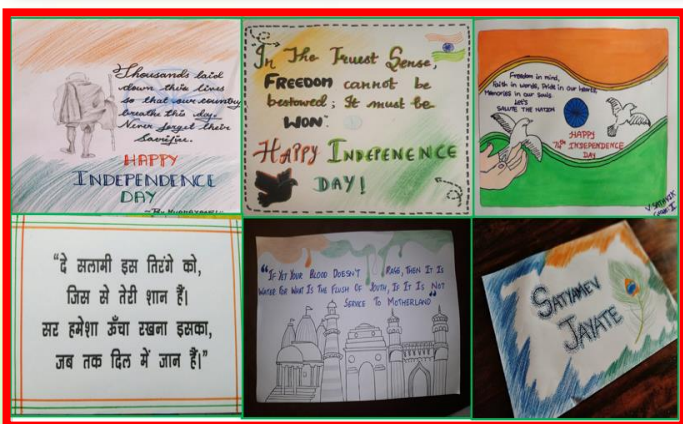 Thousands laid
down their lives
so that our country
breathe this day.
Never forget their
Sacrifice.
HAPPY
INDEPENDENCE
DAY
In The Truest Sense,
FREEDOM cannot be
bestowed; It must be
WON.
HAPPY INDEPENENCE
DAY!
Freedom in mind,
Faith in words, Pride in our heart,
Memories in our Souls.
Let's
SALUTE THE NATION
HAPPY
INDEPENDENCE
DAY
"दे सलामी इस तिरंगे को,
जिस से तेरी शान हैं।
सर हमेशा ऊँचा रखना इसका,
जब तक दिल में जान हैं।"
"IF YET YOUR BLOOD DOESN'T RAGE, THEN IT IS
WATER FOR WHAT IS THE FLUSH OF YOUTH, IF IT IS NOT
SERVICE TO MOTHERLAND"
SATYAMEV
JAYATE